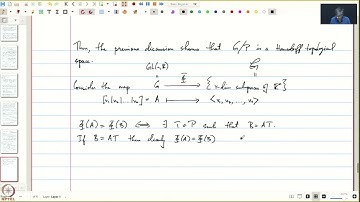 Then, the previous discussion shows that G/P is a Hausdorff topological
space.
GL(n,ℝ)
Consider the map G —Φ→ { r-dim subspaces of ℝⁿ }
[v₁|v₂|...|vₙ] = A ⟼ <v₁, v₂, ..., vᵣ>
Φ(A) = Φ(B) ⟺ ∃ T ∈ P such that B = AT.
If B = AT then clearly Φ(A) = Φ(B)
NPTEL